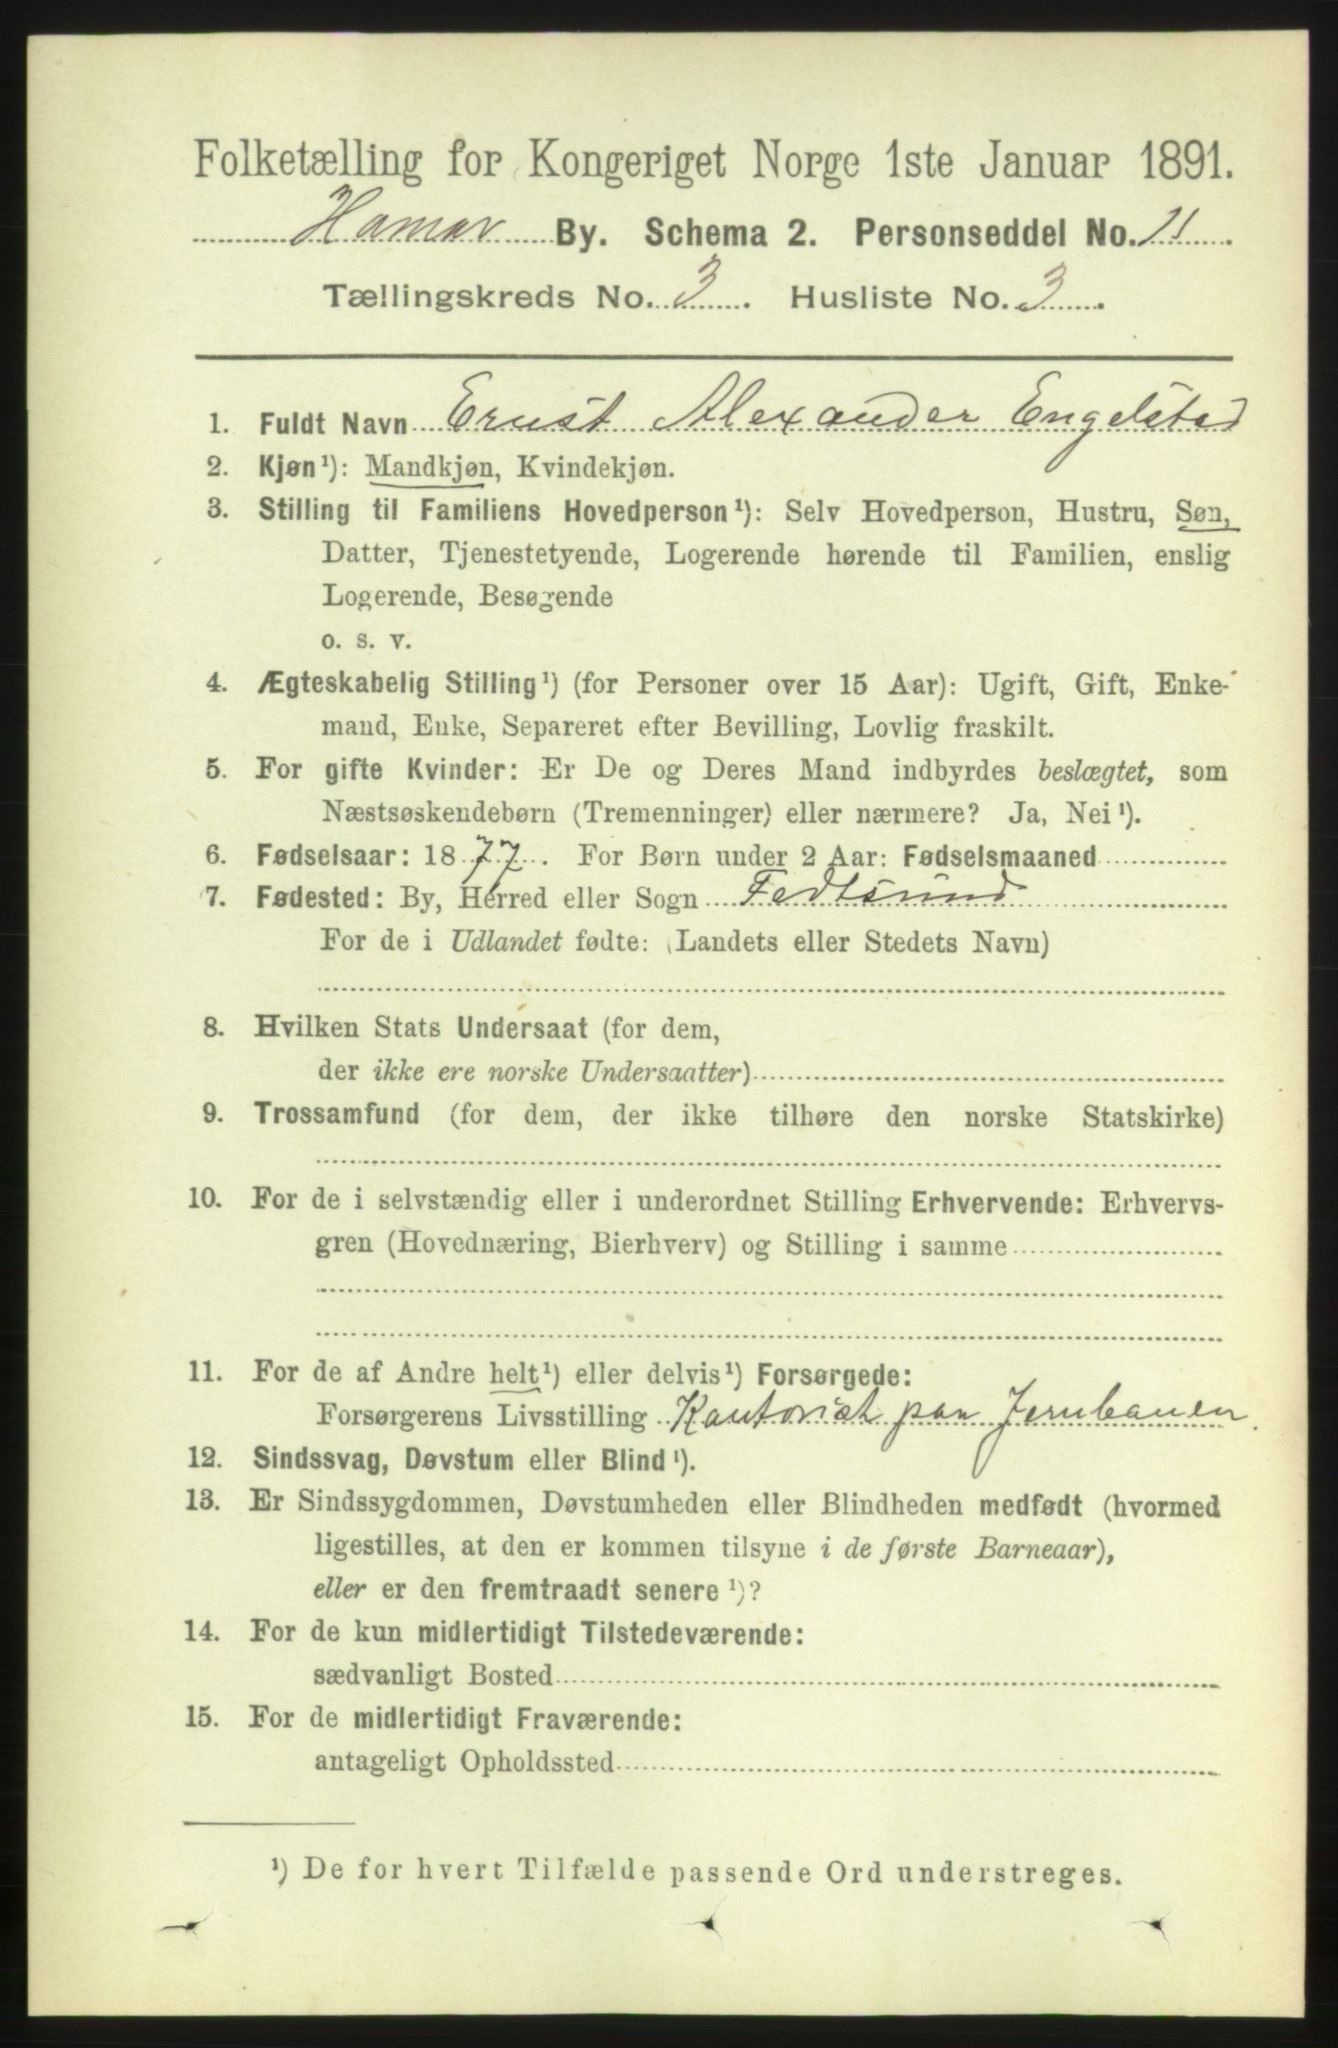 Folketælling for Kongeriget Norge 1ste Januar 1891.
Hamar By. Schema 2. Personseddel No. 11.
Tællingskreds No. 3. Husliste No. 3.
1. Fuldt Navn Ernst Alexander Engelstad
2. Kjøn¹): Mandkjøn, Kvindekjøn.
3. Stilling til Familiens Hovedperson¹): Selv Hovedperson, Hustru, Søn,
Datter, Tjenestetyende, Logerende hørende til Familien, enslig
Logerende, Besøgende
o. s. v.
4. Ægteskabelig Stilling¹) (for Personer over 15 Aar): Ugift, Gift, Enke-
mand, Enke, Separeret efter Bevilling, Lovlig fraskilt.
5. For gifte Kvinder: Er De og Deres Mand indbyrdes beslægtet, som
Næstsøskendebørn (Tremenninger) eller nærmere? Ja, Nei¹).
6. Fødselsaar: 1877. For Børn under 2 Aar: Fødselsmaaned
7. Fødested: By, Herred eller Sogn Fedtsund
For de i Udlandet fødte: (Landets eller Stedets Navn)
8. Hvilken Stats Undersaat (for dem,
der ikke ere norske Undersaatter)
9. Trossamfund (for dem, der ikke tilhøre den norske Statskirke)
10. For de i selvstændig eller i underordnet Stilling Erhvervende: Erhvervs-
gren (Hovednæring, Bierhverv) og Stilling i samme
11. For de af Andre helt¹) eller delvis¹) Forsørgede:
Forsørgerens Livsstilling Kontorist paa Jernbanen.
12. Sindssvag, Døvstum eller Blind¹).
13. Er Sindssygdommen, Døvstumheden eller Blindheden medfødt (hvormed
ligestilles, at den er kommen tilsyne i de første Barneaar),
eller er den fremtraadt senere¹)?
14. For de kun midlertidigt Tilstedeværende:
sædvanligt Bosted
15. For de midlertidigt Fraværende:
antageligt Opholdssted
¹) De for hvert Tilfælde passende Ord understreges.